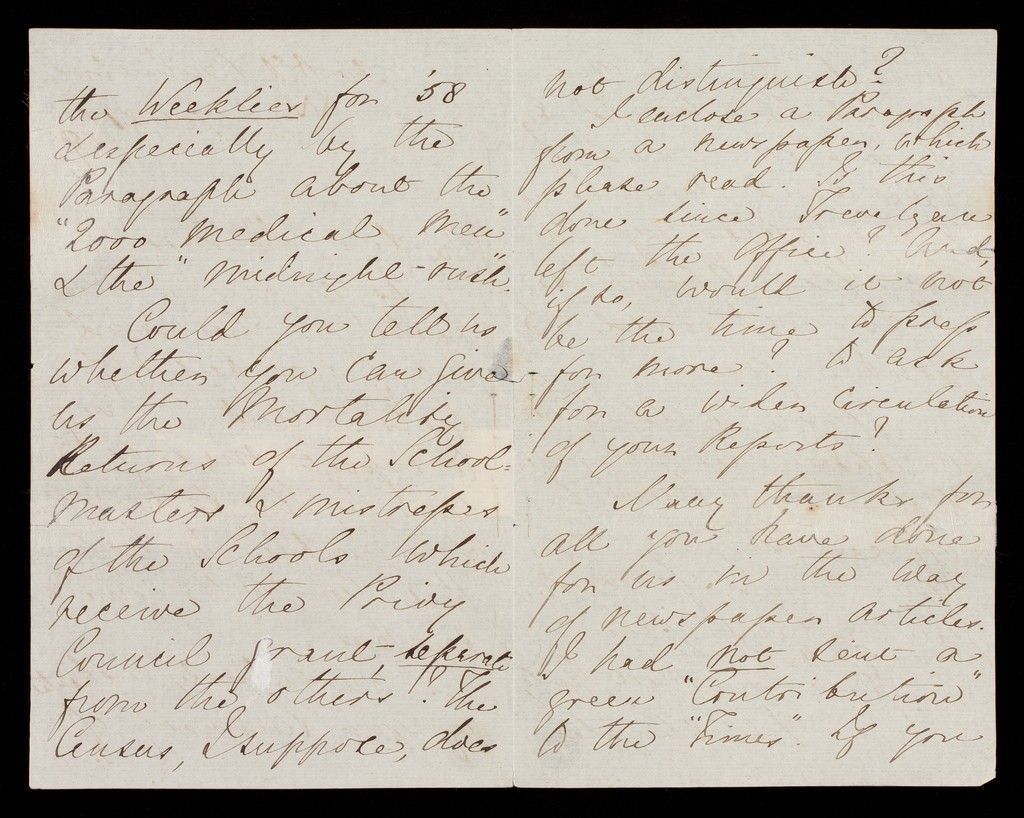 the Weeklies for '58
& especially by the
Paragraph about the
"2000 Medical Men"
& the "midnight-rush".
Could you tell us
whether you can give
us the Mortality
Returns of the School-
masters & mistresses
of the Schools which
receive the Privy
Council grant, separate
from the others? The
Census, I suppose, does
not distinguish?
I enclose a Paragraph
from a newspaper, which
please read. Is this
done since Trevelyan
left the Office? And,
if so, would it not
be the time to press
for more? to ask
for a wider circulation
of your Reports?
Many thanks for
all you have done
for us in the way
of newspaper articles.
I had not sent a
green "Contribution"
to the "Times". If you